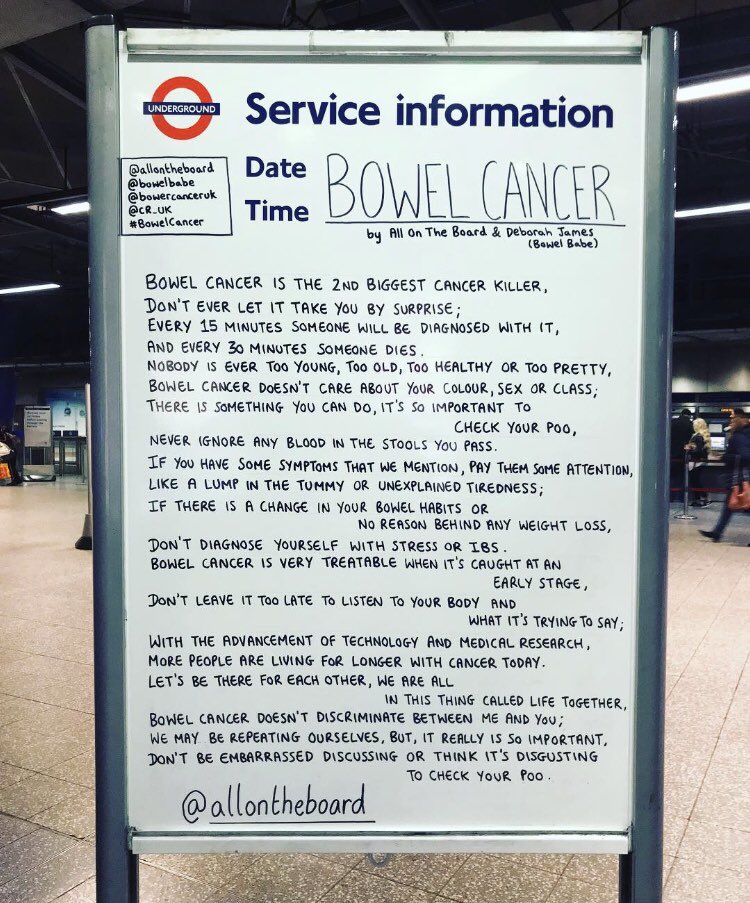 UNDERGROUND
Service information
@allontheboard
@bowelbabe
@bowercanceruk
@CR_UK
#BowelCancer
Date
Time
BOWEL CANCER
by All On The Board & Deborah James
(Bowel Babe)
BOWEL CANCER IS THE 2ND BIGGEST CANCER KILLER,
DON'T EVER LET IT TAKE YOU BY SURPRISE;
EVERY 15 MINUTES SOMEONE WILL BE DIAGNOSED WITH IT,
AND EVERY 30 MINUTES SOMEONE DIES.
NOBODY IS EVER TOO YOUNG, TOO OLD, TOO HEALTHY OR TOO PRETTY,
BOWEL CANCER DOESN'T CARE ABOUT YOUR COLOUR, SEX OR CLASS;
THERE IS SOMETHING YOU CAN DO, IT'S SO IMPORTANT TO
CHECK YOUR POO,
NEVER IGNORE ANY BLOOD IN THE STOOLS YOU PASS.
IF YOU HAVE SOME SYMPTOMS THAT WE MENTION, PAY THEM SOME ATTENTION,
LIKE A LUMP IN THE TUMMY OR UNEXPLAINED TIREDNESS;
IF THERE IS A CHANGE IN YOUR BOWEL HABITS OR
NO REASON BEHIND ANY WEIGHT LOSS,
DON'T DIAGNOSE YOURSELF WITH STRESS OR IBS.
BOWEL CANCER IS VERY TREATABLE WHEN IT'S CAUGHT AT AN
EARLY STAGE,
DON'T LEAVE IT TOO LATE TO LISTEN TO YOUR BODY AND
WHAT IT'S TRYING TO SAY;
WITH THE ADVANCEMENT OF TECHNOLOGY AND MEDICAL RESEARCH,
MORE PEOPLE ARE LIVING FOR LONGER WITH CANCER TODAY.
LET'S BE THERE FOR EACH OTHER, WE ARE ALL
IN THIS THING CALLED LIFE TOGETHER,
BOWEL CANCER DOESN'T DISCRIMINATE BETWEEN ME AND YOU;
WE MAY BE REPEATING OURSELVES, BUT, IT REALLY IS SO IMPORTANT,
DON'T BE EMBARRASSED DISCUSSING OR THINK IT'S DISGUSTING
TO CHECK YOUR POO.
@allontheboard